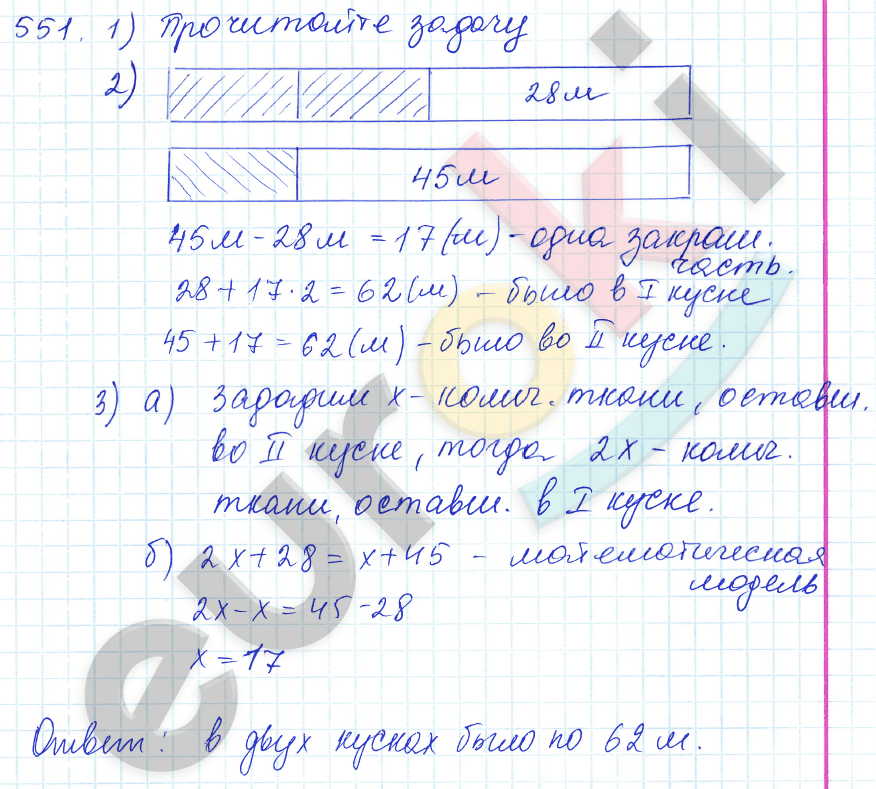 551. 1) Прочитайте задачу
2)
28м
45м
45м - 28м = 17(м) - одна закраш.
часть.
28 + 17·2 = 62(м) - было в I куске
45 + 17 = 62(м) - было во II куске.
3) а) Зададим х - колич. ткани, оставш.
во II куске, тогда 2х - колич.
ткани, оставш. в I куске.
б) 2х + 28 = х + 45 - математическая
модель
2х - х = 45 - 28
х = 17
Ответ: в двух кусках было по 62 м.
euroki